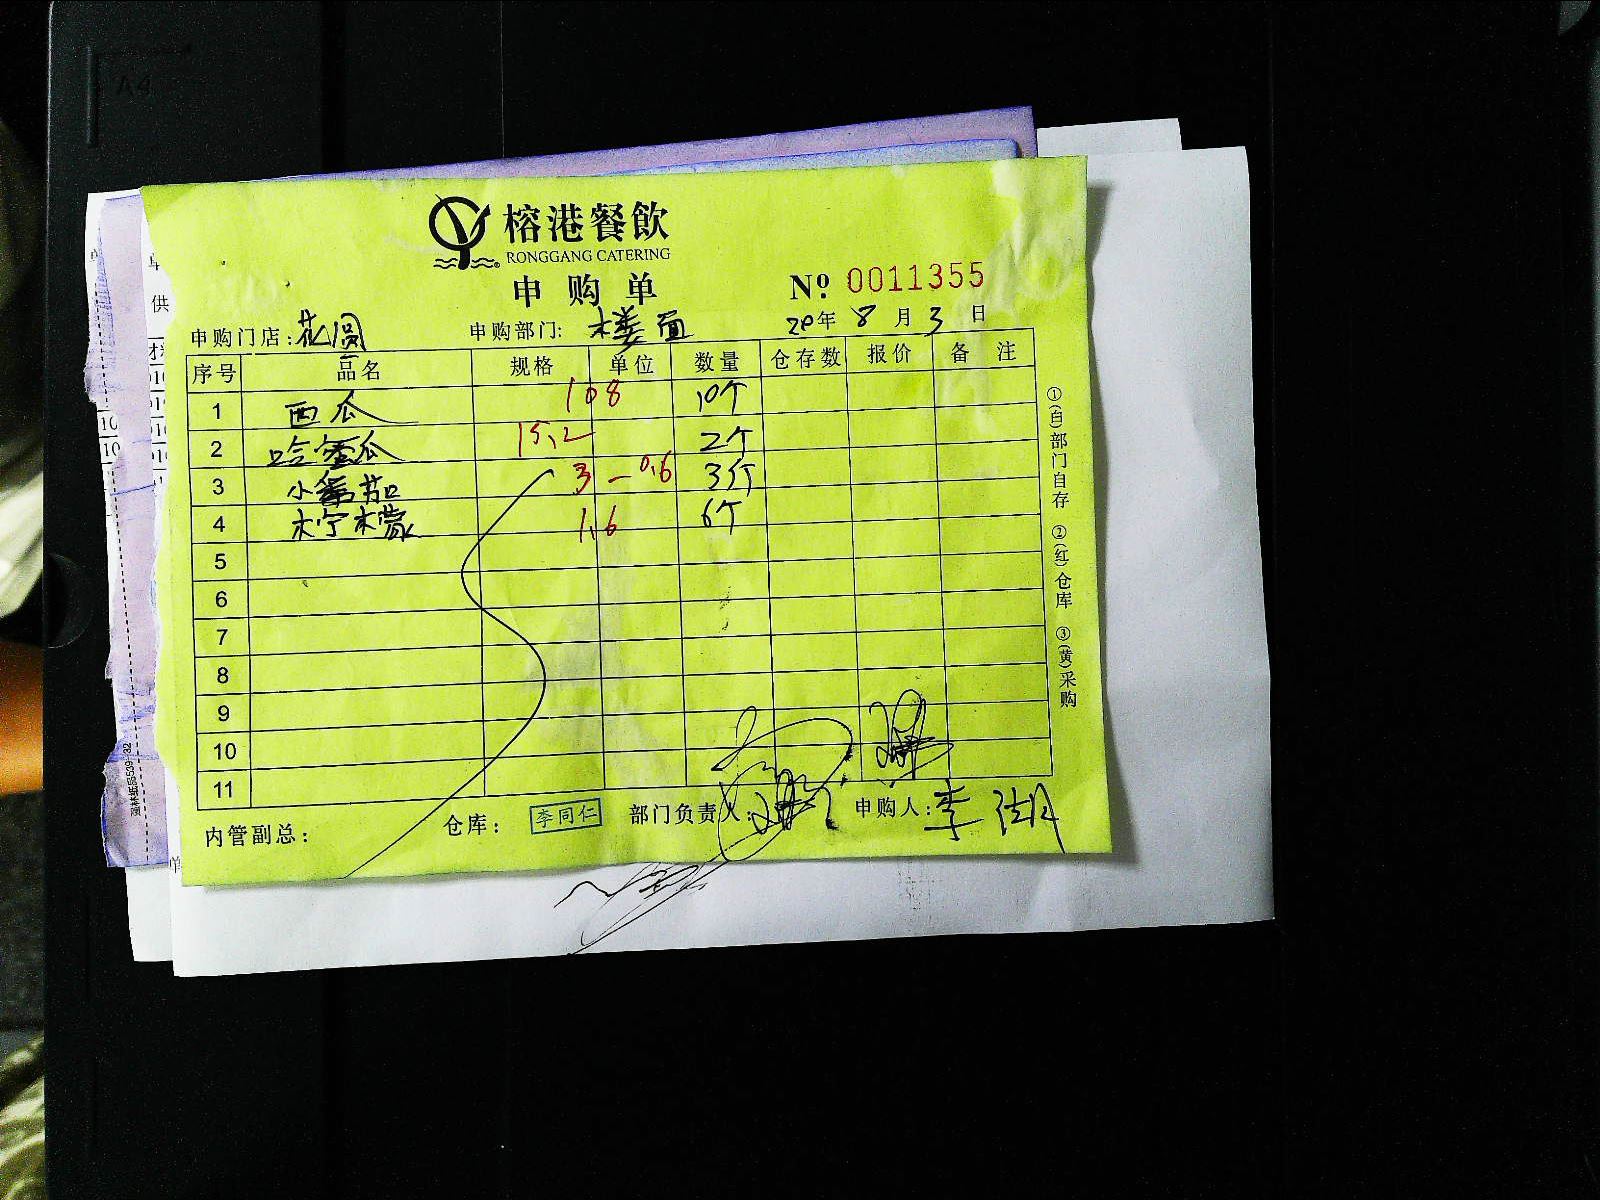 A4
榕港餐飲
RONGGANG CATERING
申购单
№. 0011355
申购门店:花圆 申购部门:楼面 20年8月3日
序号 品名 规格 单位 数量 仓存数 报价 备注
1 西瓜 108 10个
2 哈蜜瓜 15.2 2个
3 小番茄 3-0.6 3个
4 柠檬 1.6 6个
5
6
7
8
9
10
11
内管副总: 仓库: 李同仁 部门负责人: 申购人:李
①(白)部门自存 ②(红)仓库 ③(黄)采购
单
供
10
10